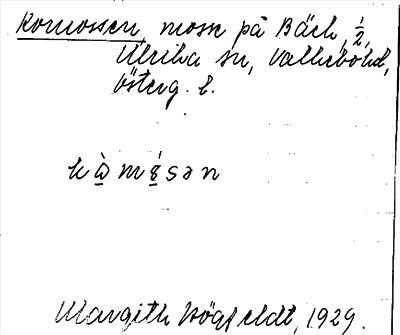 Komossen, mosse på Bäck, 1/2,
Ulrika sn, Vallebohd,
Österg. l.
kòmósən
Margith Högfeldt, 1929.